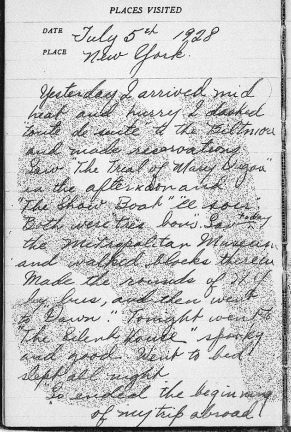 PLACES VISITED
DATE July 5th 1928
PLACE New York.
Yesterday I arrived mid
heat and hurry I dashed
"toute de suite" to the Biltmore
and made reservations
Saw "The Trial of Mary Dugan"
in the afternoon and
"The Show Boat" "ce soir."
Both were très bon. Saw today
the Metropolitan Museum
and walked blocks therein
Made the rounds of N.Y.
by bus, and then went
to Dawn." Tonight went to
"The Silent House" spooky
and good. Went to bed
slept all night
So ended the beginning
of my trip abroad